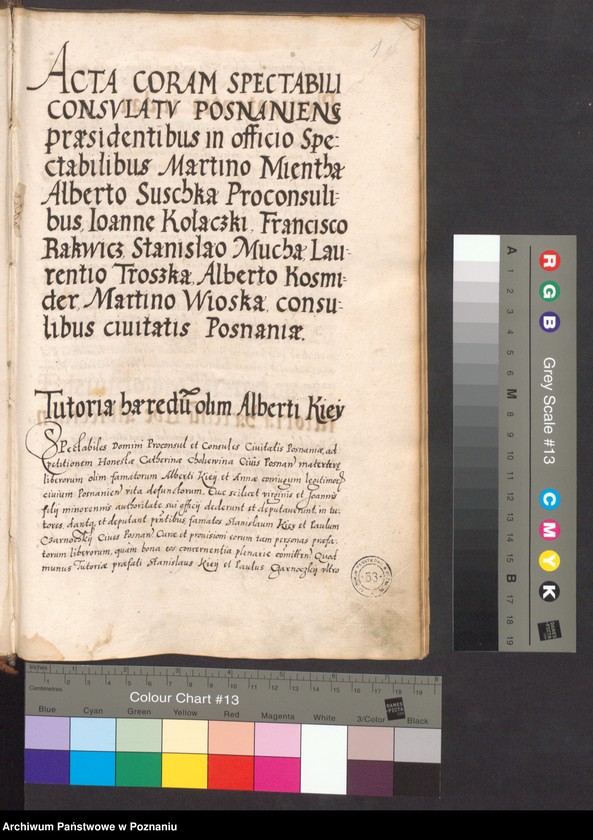 ACTA CORAM SPECTABILI
CONSVLATV POSNANIENS
præsidentibus in officio Spe:
ctabilibus Martino Mientha
Alberto Suschka Proconsuli:
bus, Ioanne Kolaczki, Francisco
Rakwicz, Stanislao Mucha, Lau:
rentio Troszka, Alberto Kosmi:
der, Martino Wioska, consu:
libus ciuitatis Posnaniæ.
Tutoria hæredū olim Alberti Kiey
Spectabiles Domini Proconsul et Consules Ciuitatis Posnaniæ, ad
petitionem Honestæ Catherinæ Ciuis Posnan
liberorum olim famatorum Alberti Kiey et Annæ coniugum legitimorum
ciuium Posnanien vita defunctorum. Duæ scilicet virginis et Joannis
filij minorennis authoritate sui officij dederunt et deputauerunt in tu:
tores, dantq et deputant famatos Stanislaum Kiey et Paulum
Czarnoczky Ciues Posnan Curæ et prouisioni eorum tam personas præfa:
torum liberorum, quam bona eos concernentia plenarie Quod
munus Tutoriæ præfati Stanislaus Kiey et Paulus Czarnoczky vltro
53
Grey Scale #13
R
G
B
C
M
Y
K
A 1 2 3 4 5 6 M 8 9 10 11 12 13 14 15 B 17 18 19
Inches 1 2 3 4 5 6 7 8
Centimetres 1 2 3 4 5 6 7 8 9 10 11 12 13 14 15 16 17 18 19
Colour Chart #13
DANES PICTA
Blue Cyan Green Yellow Red Magenta White 3/Color Black
Archiwum Państwowe w Poznaniu